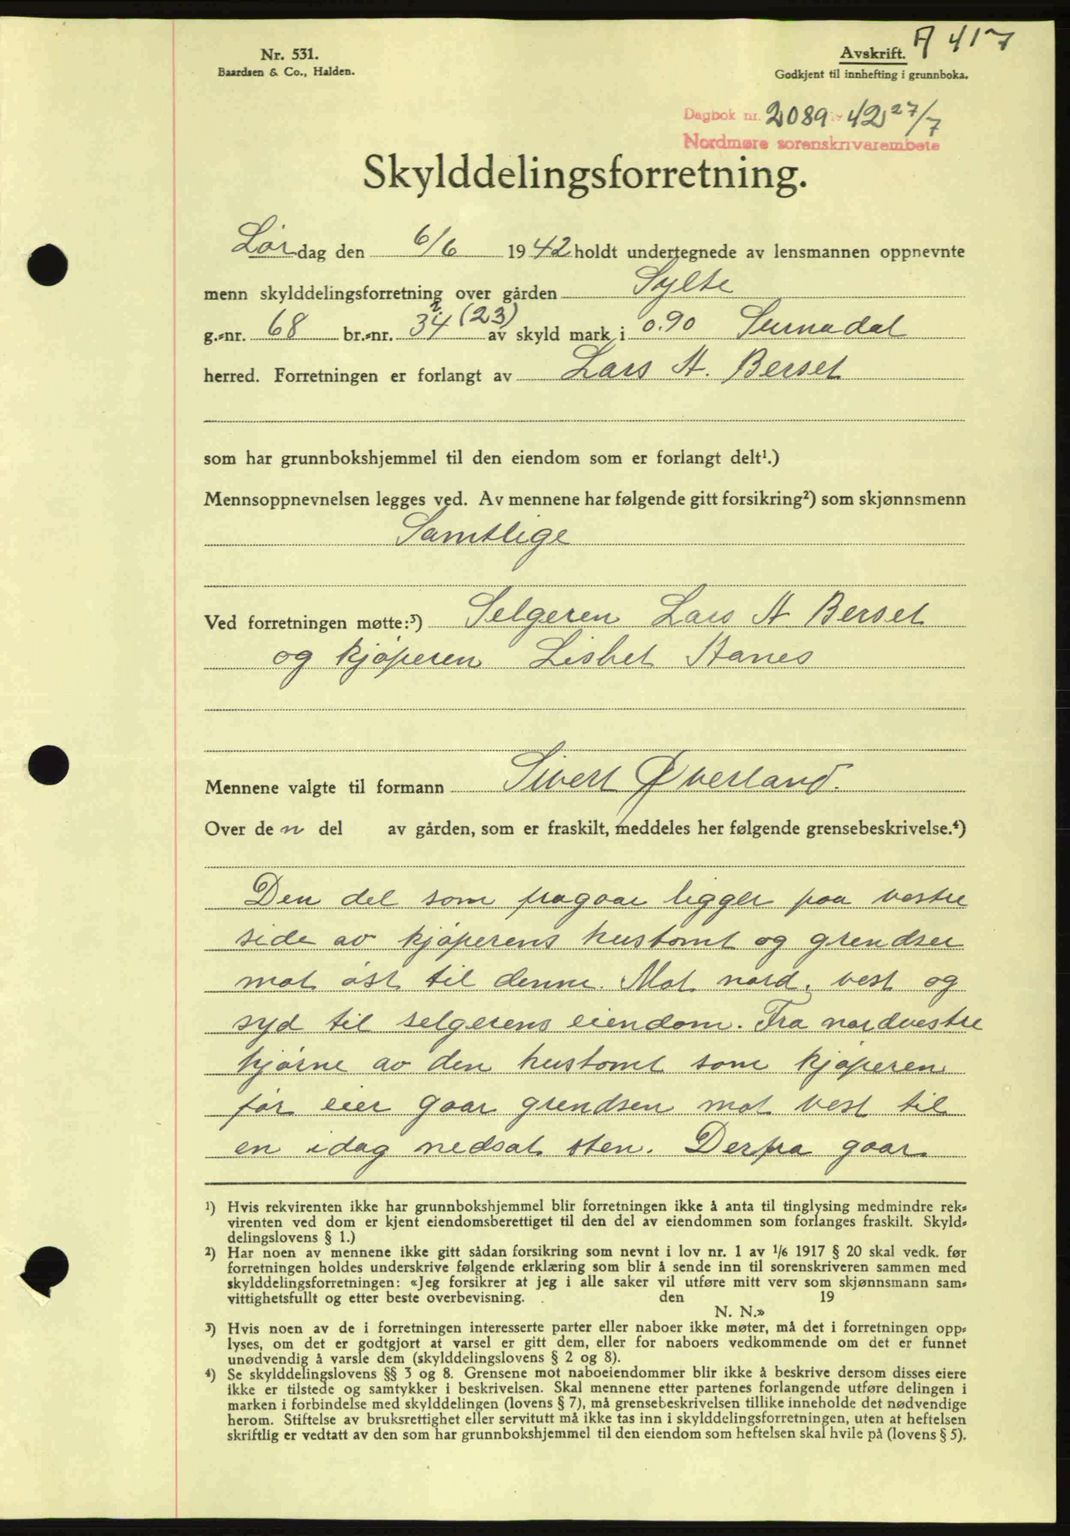 A 417
Nr. 531.
Baardsen & Co., Halden.
Avskrift.
Godkjent til innhefting i grunnboka.
Dagbok nr. 2089 - 42 27/7
Nordmøre sorenskrivarembete
Skylddelingsforretning.
Lørdag den 6/6 1942 holdt undertegnede av lensmannen oppnevnte
menn skylddelingsforretning over gården Sylte
g.-nr. 68 br.-nr. 34 2. (23) av skyld mark i 0.90 Surnadal
herred. Forretningen er forlangt av Lars H. Berset
som har grunnbokshjemmel til den eiendom som er forlangt delt¹.)
Mennsoppnevnelsen legges ved. Av mennene har følgende gitt forsikring²) som skjønnsmenn
Samtlige
Ved forretningen møtte:³) Selgeren Lars H Berset
og kjøperen Lisbet Hanes
Mennene valgte til formann Sivert Øverland.
Over den del av gården, som er fraskilt, meddeles her følgende grensebeskrivelse.⁴)
Den del som fragaar ligger paa vestre
side av kjøperens hustomt og grendser
mot øst til denne. Mot nord, vest og
syd til selgerens eiendom. Fra nordvestre
hjørne av den hustomt som kjøperen
før eier gaar grendsen mot vest til
en idag nedsat sten. Derfra gaar
¹) Hvis rekvirenten ikke har grunnbokshjemmel blir forretningen ikke å anta til tinglysing medmindre rek-
virenten ved dom er kjent eiendomsberettiget til den del av eiendommen som forlanges fraskilt. Skyld-
delingslovens § 1.)
²) Har noen av mennene ikke gitt sådan forsikring som nevnt i lov nr. 1 av 1/6 1917 § 20 skal vedk. før
forretningen holdes underskrive følgende erklæring som blir å sende inn til sorenskriveren sammen med
skylddelingsforretningen: «Jeg forsikrer at jeg i alle saker vil utføre mitt verv som skjønnsmann sam-
vittighetsfullt og etter beste overbevisning. den 19
N. N.»
³) Hvis noen av de i forretningen interesserte parter eller naboer ikke møter, må det i forretningen opp-
lyses, om det er godtgjort at varsel er gitt dem, eller for naboers vedkommende om det er funnet
unødvendig å varsle dem (skylddelingslovens § 2 og 8).
⁴) Se skylddelingslovens §§ 3 og 8. Grensene mot naboeiendommer blir ikke å beskrive dersom disses eiere
ikke er tilstede og samtykker i beskrivelsen. Skal mennene etter partenes forlangende utføre delingen i
marken i forbindelse med skylddelingen (lovens § 7), må grensebeskrivelsen tillike inneholde det nødvendige
herom. Stiftelse av bruksrettighet eller servitutt må ikke tas inn i skylddelingsforretningen, uten at heftelsen
skriftlig er vedtatt av den som har grunnbokshjemmel til den eiendom som heftelsen skal hvile på (lovens § 5).